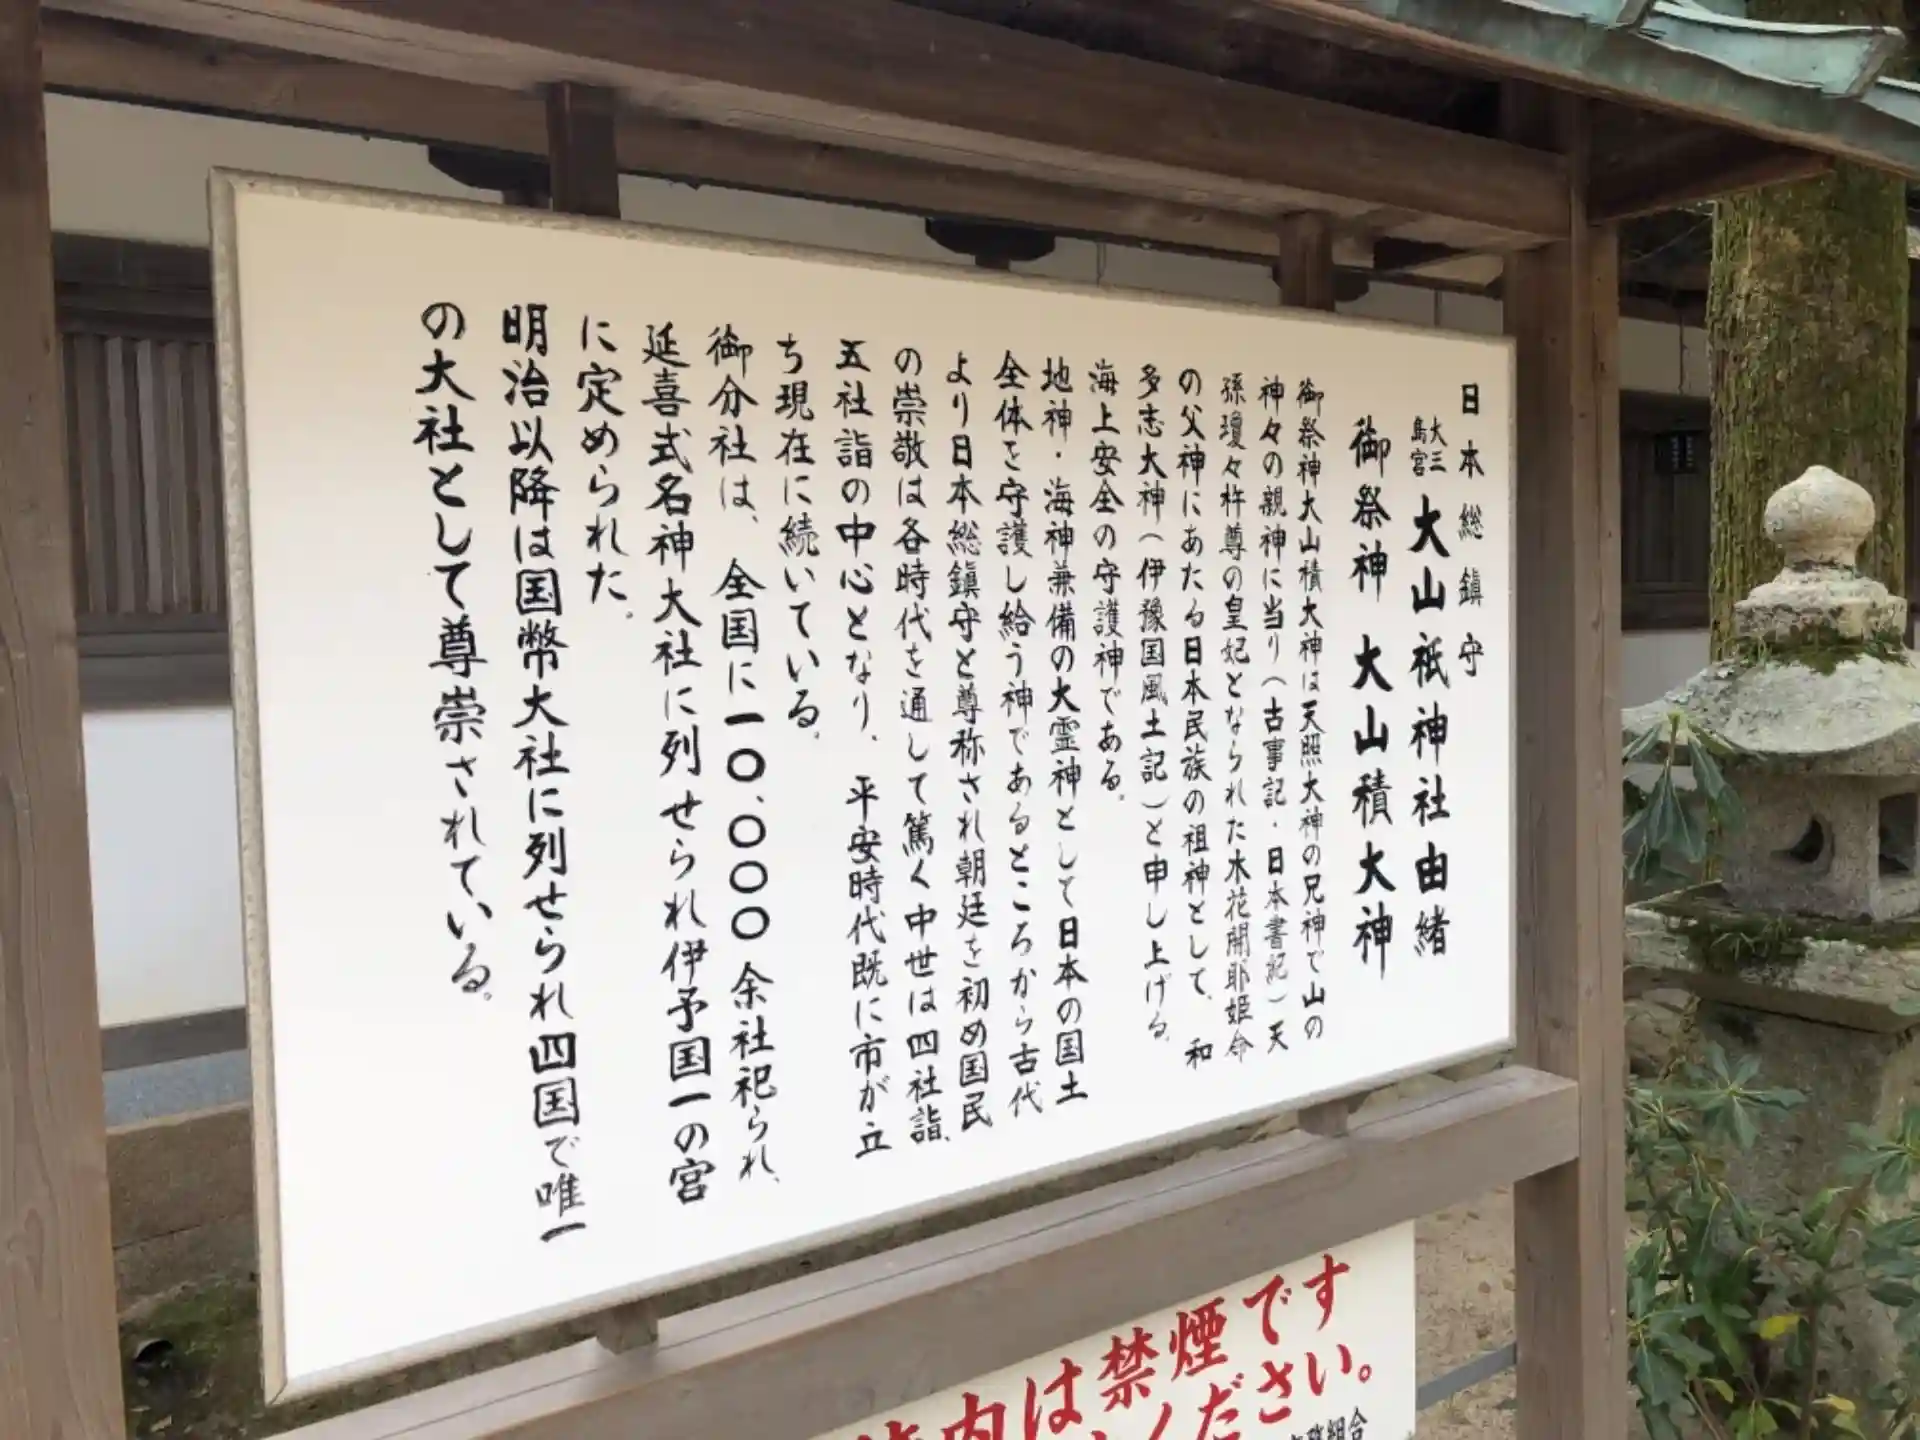 日本総鎮守
大三島宮 大山祇神社由緒
御祭神 大山積大神
御祭神大山積大神は天照大神の兄神で山の
神々の親神に当り(古事記・日本書紀)天
孫瓊々杵尊の皇妃となられた木花開耶姫命
の父神にあたる日本民族の祖神として、和
多志大神(伊豫国風土記)と申し上げる。
海上安全の守護神である。
地神・海神兼備の大霊神として日本の国土
全体を守護し給う神であるところから古代
より日本総鎮守と尊称され朝廷を初め国民
の崇敬は各時代を通して篤く中世は四社詣、
五社詣の中心となり、平安時代既に市が立
ち現在に続いている。
御分社は、全国に一〇、〇〇〇余社祀られ、
延喜式名神大社に列せられ伊予国一の宮
に定められた。
明治以降は国幣大社に列せられ四国で唯一
の大社として尊崇されている。
内は禁煙です
ください。
組合